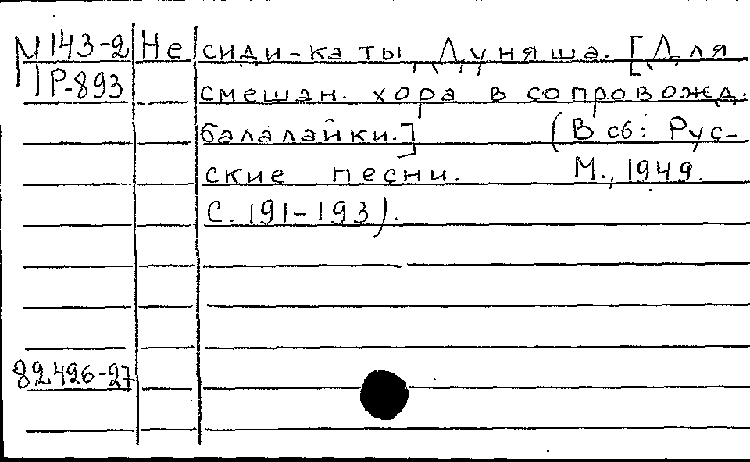 М 143-2 Не сиди-ка ты, Дуняша. [Для
Р-893 смешан. хора в сопровожд.
балалайки.] (В сб: Рус-
ские песни. М., 1949.
С. 191-193).
82.426-27